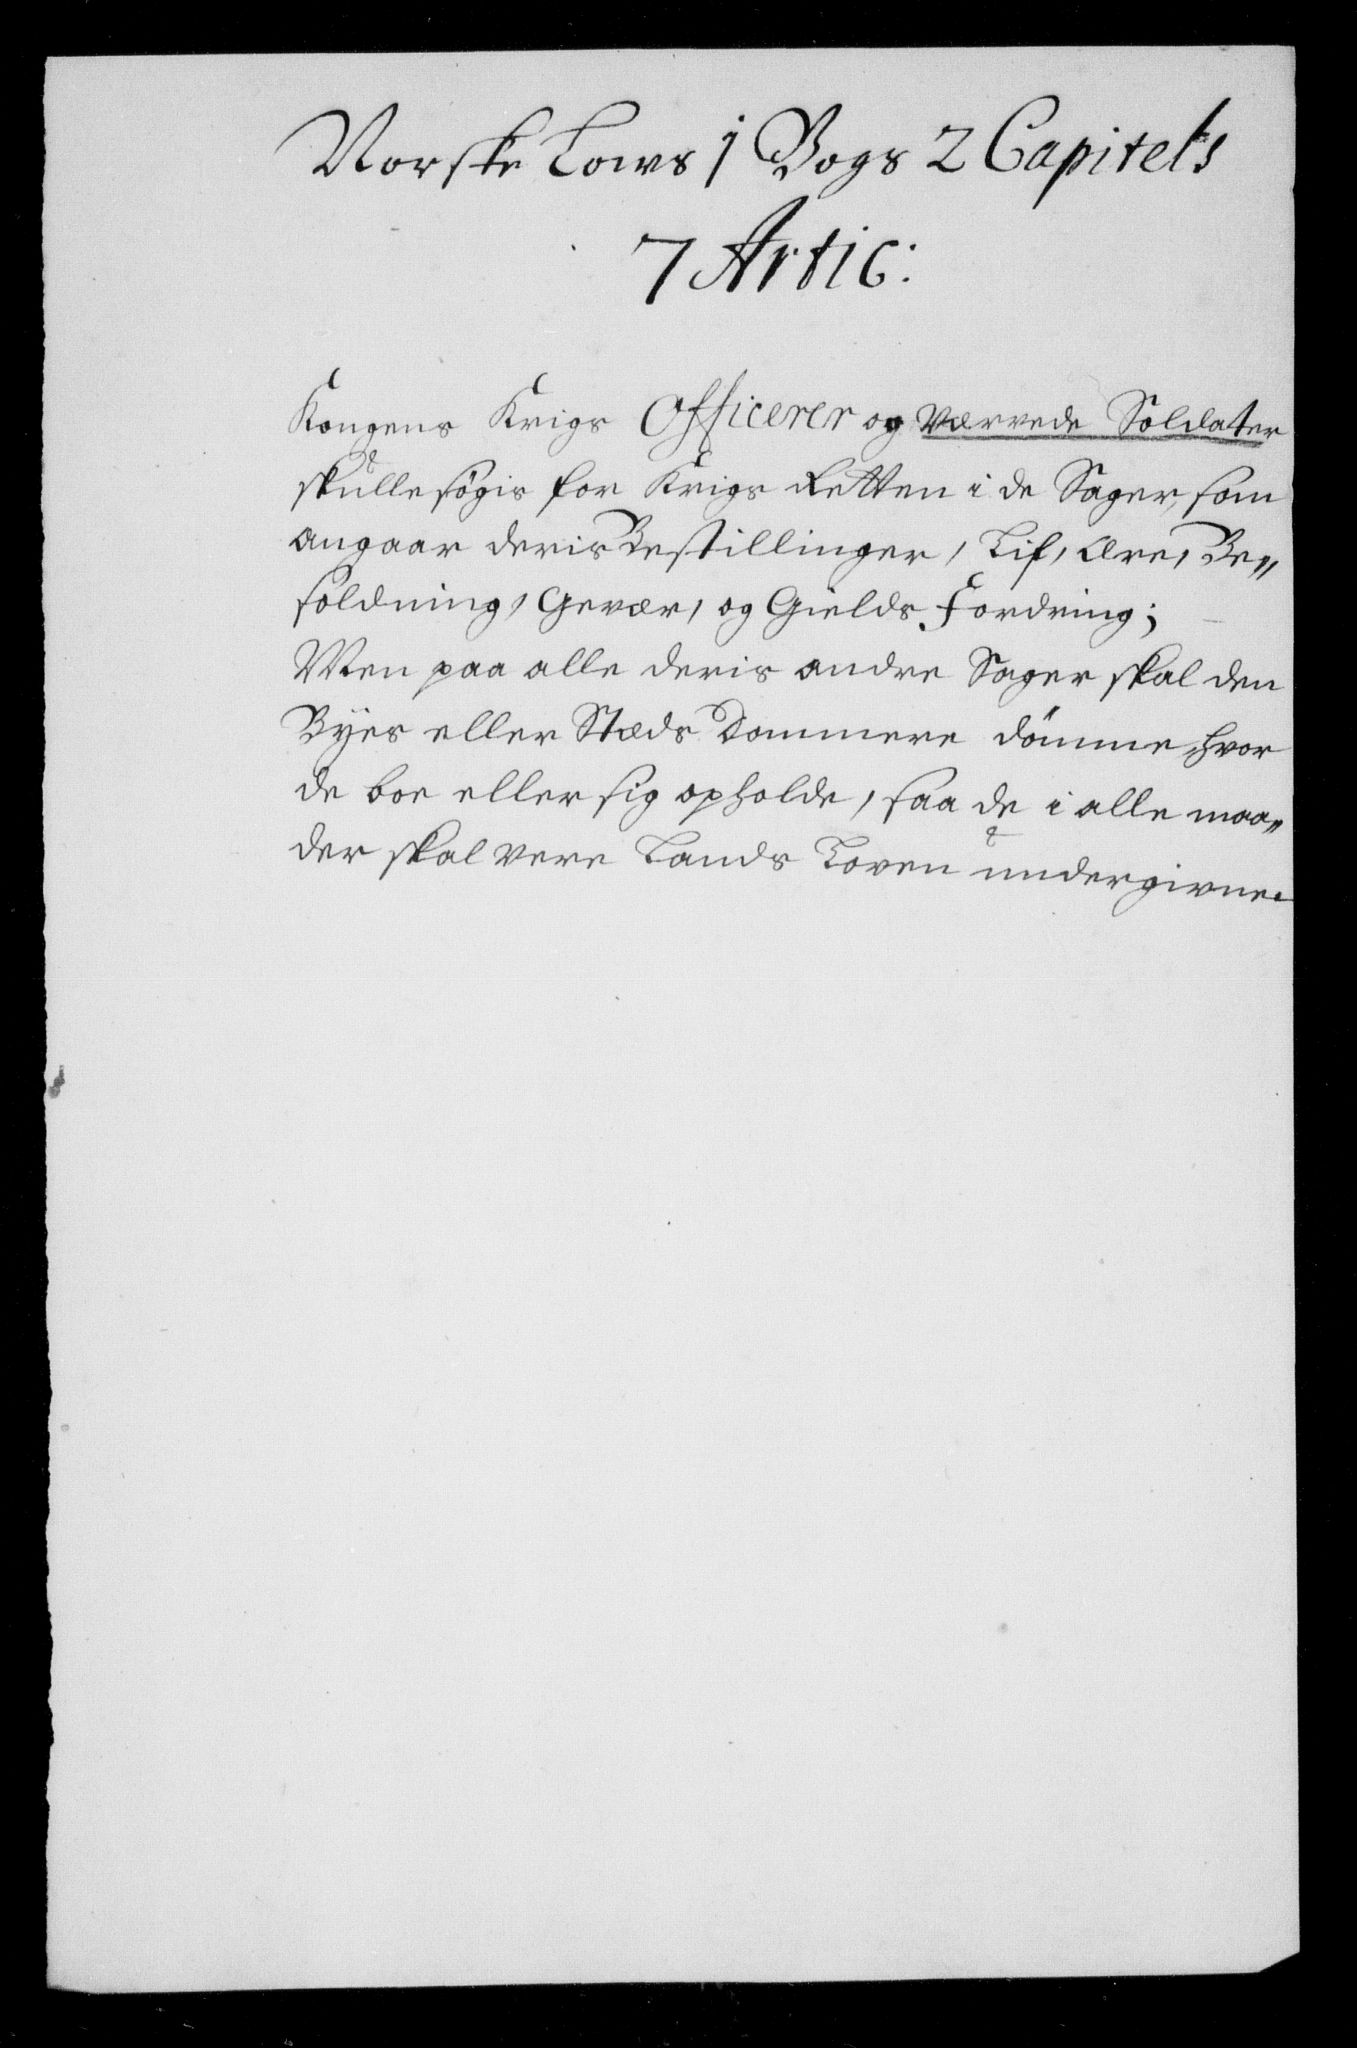 Norske Lows 1 Bogs 2 Capitels
7 Artic:
Kongens Krigs Officerer og værvede Soldater
skulle søgis for Krigs Retten i de Sager, som
angaar deris Bestillinger, Lif, Ære, Be„
soldning, Gevær, og Gields Fordring;
Men paa alle deris andre Sager skal den
Byes eller Stæds Dommere dömme, hvor
de boe eller sig opholde, saa de i alle maa„
der skal vere Lands Loven undergivne.